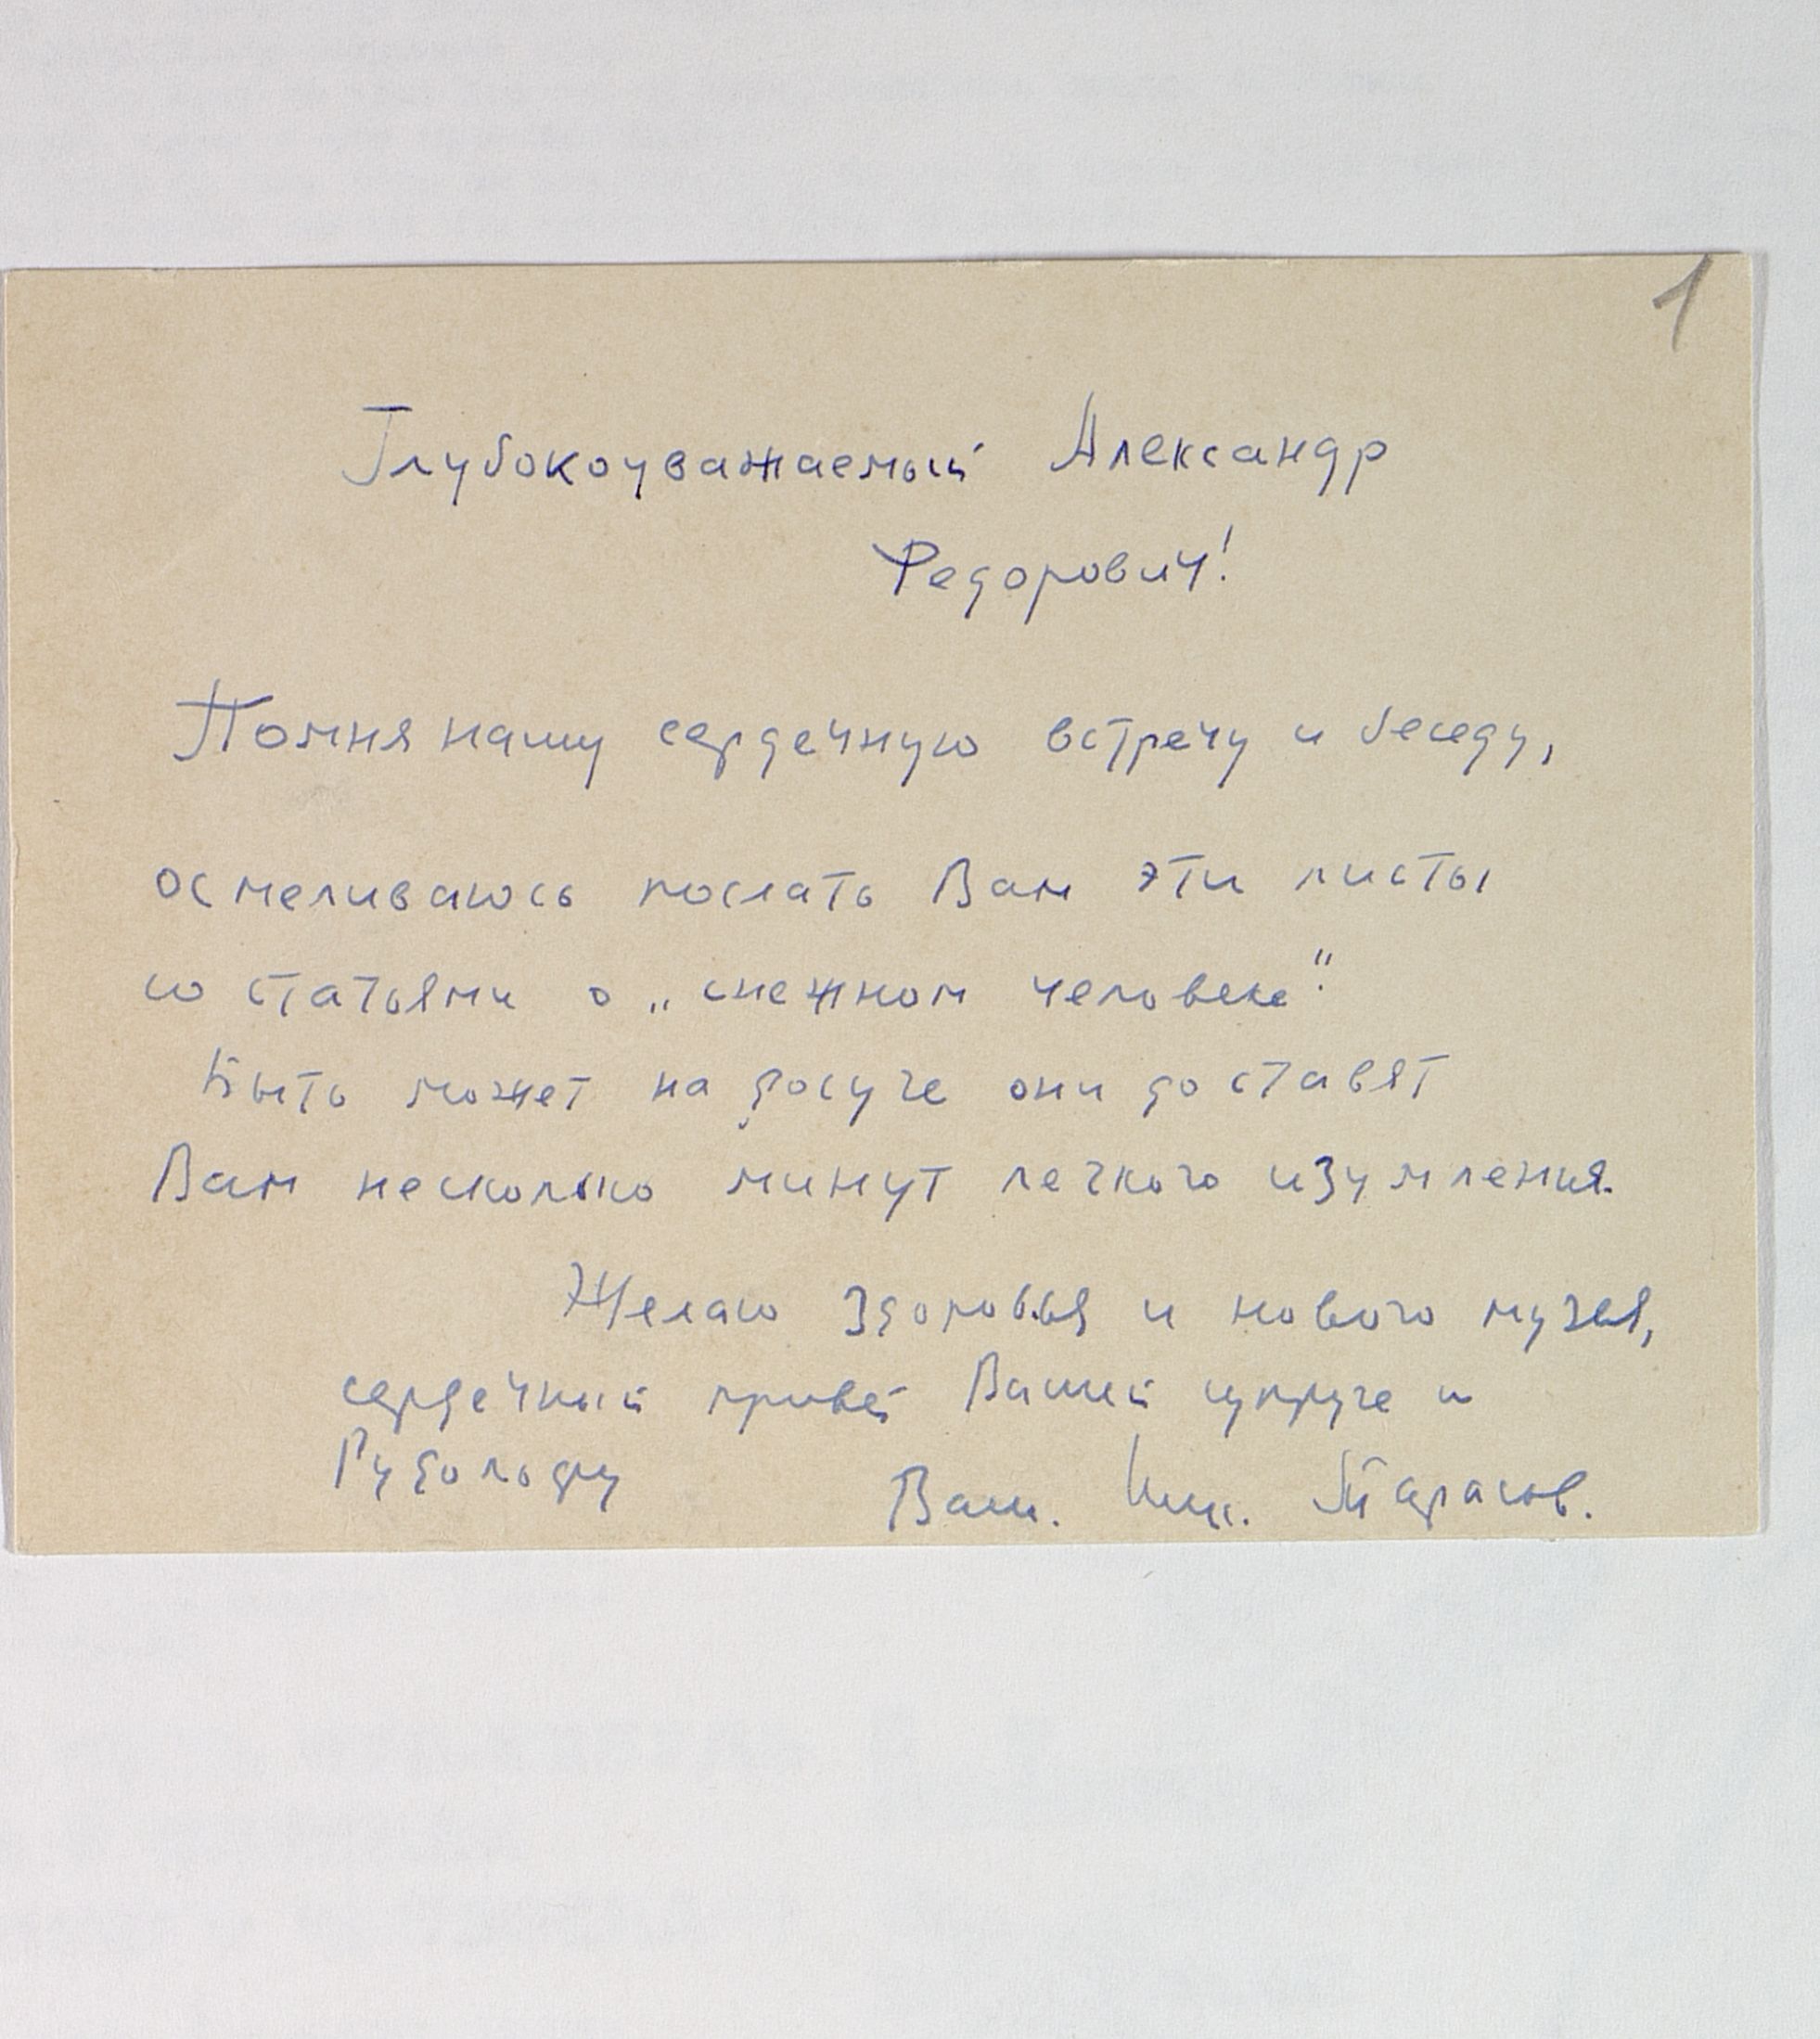 1
Глубокоуважаемый Александр
Федорович!
Помня нашу сердечную встречу и беседу,
осмеливаюсь послать Вам эти листы
со статьями о „снежном человеке".
Быть может на досуге они доставят
Вам несколько минут легкого изумления.
Желаю здоровья и нового музея,
сердечный привет Вашей супруге и
Рудольфу
Ваш. Тарасов.